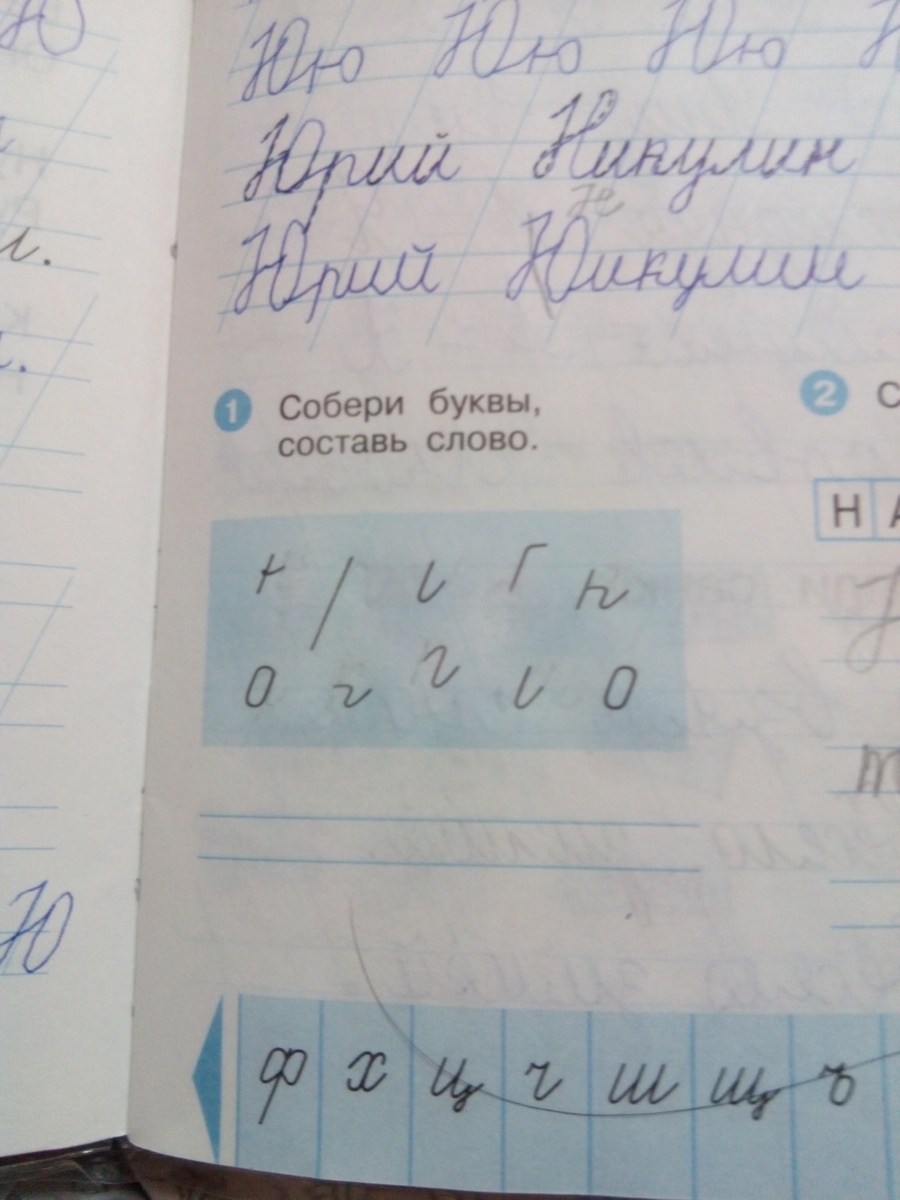 Ю
Юю Юю Юю
Юрий Никулин
л.
не
Юрий Юикулин
1 Собери буквы,
составь слово.
2 С
Н А
Ю
ф х ц ч ш щ ъ